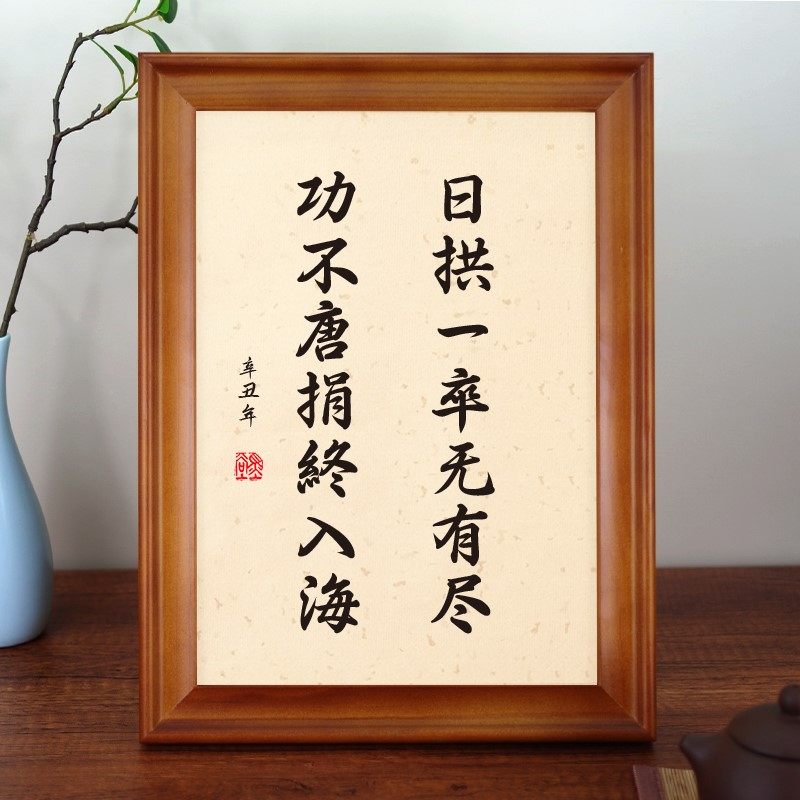 日拱一卒无有尽
功不唐捐終入海
辛丑年